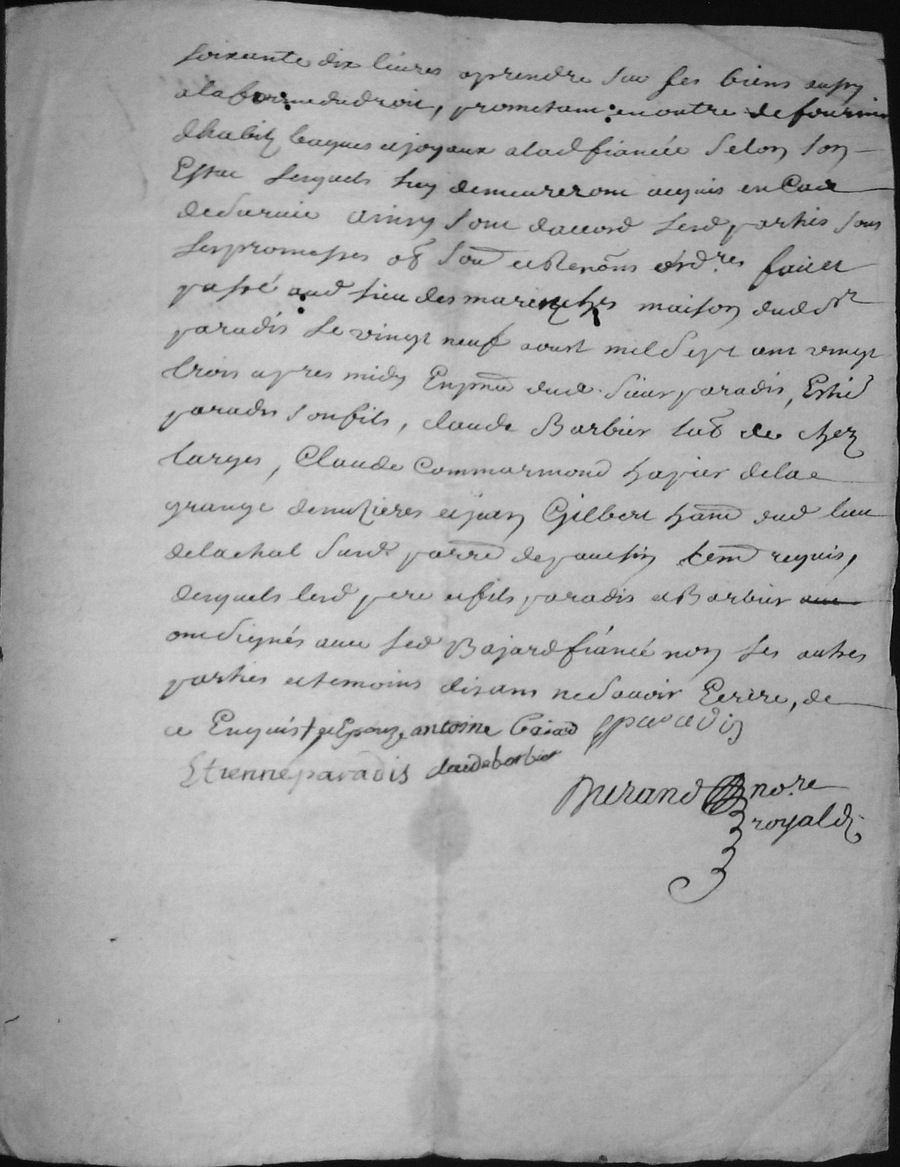 soixante dix livres aprendre sur ses biens aussy
a la forme du droit, prometant en outre de fournir
dhabitz bagues et joyaux a lad fiancée selon son
Estat lesquels luy demeureront acquis en cas
de survie ainsy sont daccord lesd parties sous
les promesses ob son et Renons ord.res fait et
passé aud lieu des marenches maison dud Sr
paradis le vingt neuf aoust mil sept cent vingt
trois apres midy En pnce dud. Sieur paradis, Estiē
paradis son fils, claude Barbier lab de chez
larges, Claude Commarmond papier de la
grange de muzieres et jean Gilbert habt dud lieu
de lachal susd parre de temoins requis,
desquels lesd pere et fils paradis et Barbier
ont signés avec led Bajard fiancé non les autres
parties et temoins disans ne scavoir Ecrire, de
ce Enquis antoine baiard paradis
Etienne paradis claude barbier
Durand no.re
royal